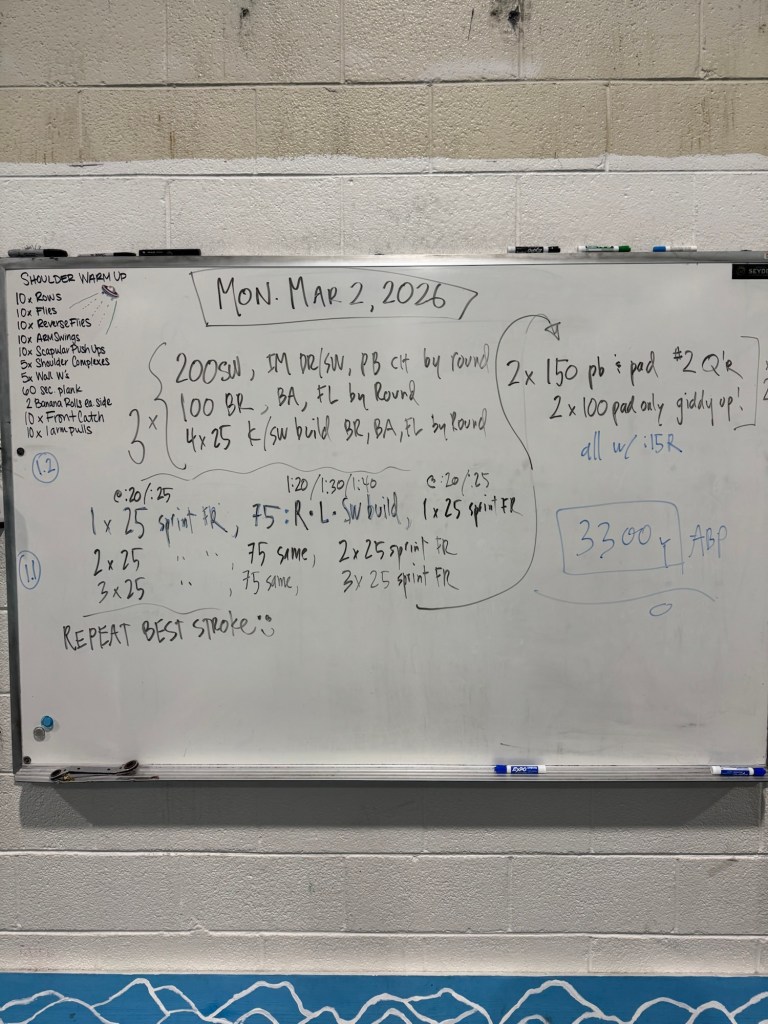 SHOULDER WARM UP
10x Rows
10x Flies
10x Reverse Flies
10x ARM Swings
10x Scapular Push Ups
5x Shoulder Complexes
5x Wall W's
60 sec. plank
2 Banana Rolls ea. side
10x Front Catch
10x 1 arm pulls
MON. MAR 2, 2026
3x
200 SW, IM DR/SW, PB by round
100 BR, BA, FL by Round
4x25 K/SW build BR, BA, FL by Round
1:2
@:20/:25 1:20/1:30/1:40 @:20/:25
1x25 sprint FR, 75: R·L·SW build, 1x25 sprint FR
2x25 " ", 75 same, 2x25 sprint FR
1:1
3x25 " , 75 same, 3x25 sprint FR
REPEAT BEST STROKE
2x 150 pb & pad #2 Q'R
2x100 pad only giddy up!
all w/ :15R
3300y ABP
EXPO